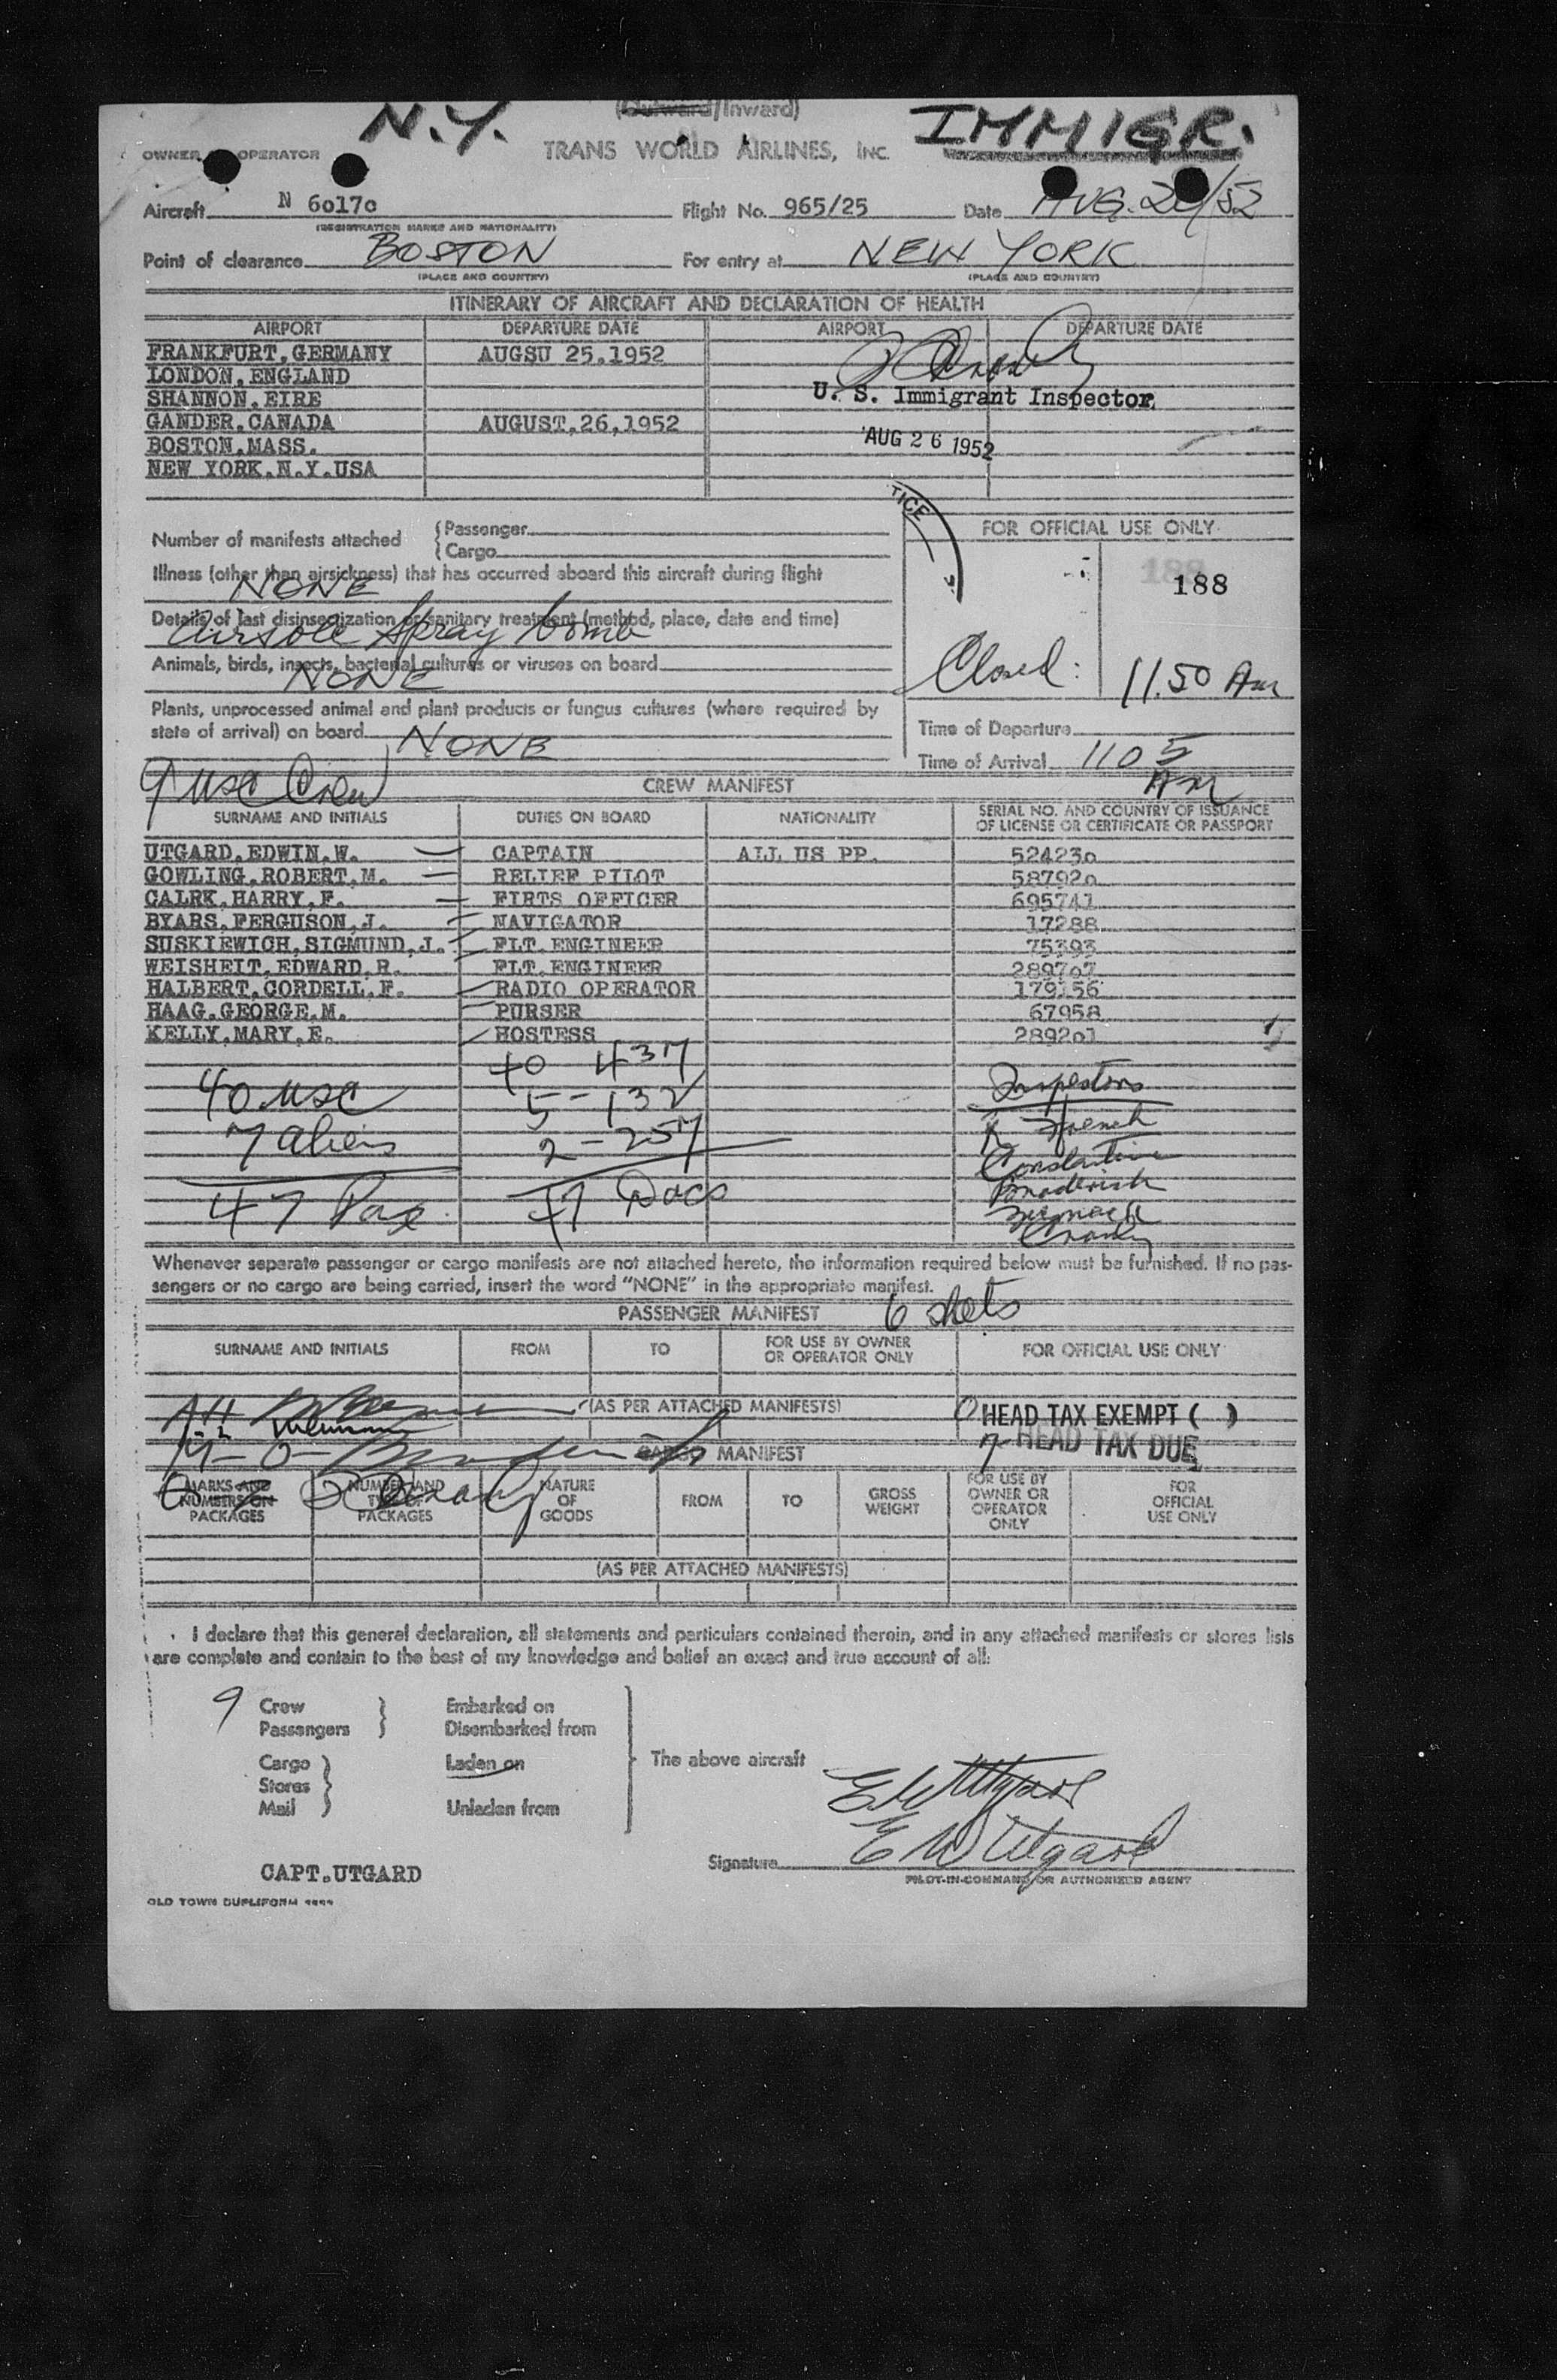 N.Y.
(Outward/Inward)
IMMIGR.
OWNER OPERATOR TRANS WORLD AIRLINES, INC.
Aircraft N 6017C Flight No. 965/25 Date AUG. 26/52
(REGISTRATION MARKS AND NATIONALITY)
Point of clearance BOSTON For entry at NEW YORK
(PLACE AND COUNTRY) (PLACE AND COUNTRY)
ITINERARY OF AIRCRAFT AND DECLARATION OF HEALTH
AIRPORT DEPARTURE DATE AIRPORT DEPARTURE DATE
FRANKFURT,GERMANY AUGSU 25,1952
LONDON,ENGLAND
SHANNON,EIRE U. S. Immigrant Inspector
GANDER,CANADA AUGUST,26,1952
BOSTON,MASS. AUG 26 1952
NEW YORK,N.Y.USA
TICE
Number of manifests attached {Passenger
{Cargo
FOR OFFICIAL USE ONLY
Illness (other than airsickness) that has occurred aboard this aircraft during flight
NONE
188
Details of last disinsectization or sanitary treatment (method, place, date and time)
Airsole Spray bomb
Animals, birds, insects, bacterial cultures or viruses on board
NONE
Closed: 11.50 Am
Plants, unprocessed animal and plant products or fungus cultures (where required by
state of arrival) on board NONE
Time of Departure
Time of Arrival 1105 Am
9 USC Crew
CREW MANIFEST
SURNAME AND INITIALS DUTIES ON BOARD NATIONALITY SERIAL NO. AND COUNTRY OF ISSUANCE
OF LICENSE OR CERTIFICATE OR PASSPORT
UTGARD,EDWIN,W. CAPTAIN ALL US PP. 524230
GOWLING,ROBERT,M. RELIEF PILOT 587920
CALRK,HARRY,F. FIRTS OFFICER 695741
BYARS,FERGUSON,J. NAVIGATOR 17288
SUSKIEWICH,SIGMUND,J. FLT.ENGINEER 75393
WEISHEIT,EDWARD,R. FLT.ENGINEER 289707
HALBERT,CORDELL,F. RADIO OPERATOR 179156
HAAG,GEORGE,M. PURSER 67958
KELLY,MARY,E. HOSTESS 289201
40 USC 40 437 Inspectors
7 aliens 5 - 132 French
2 - 257 Constantine
47 Pax 47 Docs
Whenever separate passenger or cargo manifests are not attached hereto, the information required below must be furnished. If no pas-
sengers or no cargo are being carried, insert the word "NONE" in the appropriate manifest.
PASSENGER MANIFEST 6 shets
SURNAME AND INITIALS FROM TO FOR USE BY OWNER
OR OPERATOR ONLY FOR OFFICIAL USE ONLY
(AS PER ATTACHED MANIFESTS) 0 HEAD TAX EXEMPT ( )
7 HEAD TAX DUE
CARGO MANIFEST
MARKS AND
NUMBERS ON
PACKAGES NUMBER AND
TYPE OF
PACKAGES NATURE
OF
GOODS FROM TO GROSS
WEIGHT FOR USE BY
OWNER OR
OPERATOR
ONLY FOR
OFFICIAL
USE ONLY
(AS PER ATTACHED MANIFESTS)
I declare that this general declaration, all statements and particulars contained therein, and in any attached manifests or stores lists
are complete and contain to the best of my knowledge and belief an exact and true account of all:
9 Crew Embarked on
Passengers Disembarked from
Cargo Laden on The above aircraft
Stores
Mail Unladen from
E W Utgard
E W Utgard
CAPT.UTGARD Signature
PILOT-IN-COMMAND OR AUTHORIZED AGENT
OLD TOWN DUPLIFORM